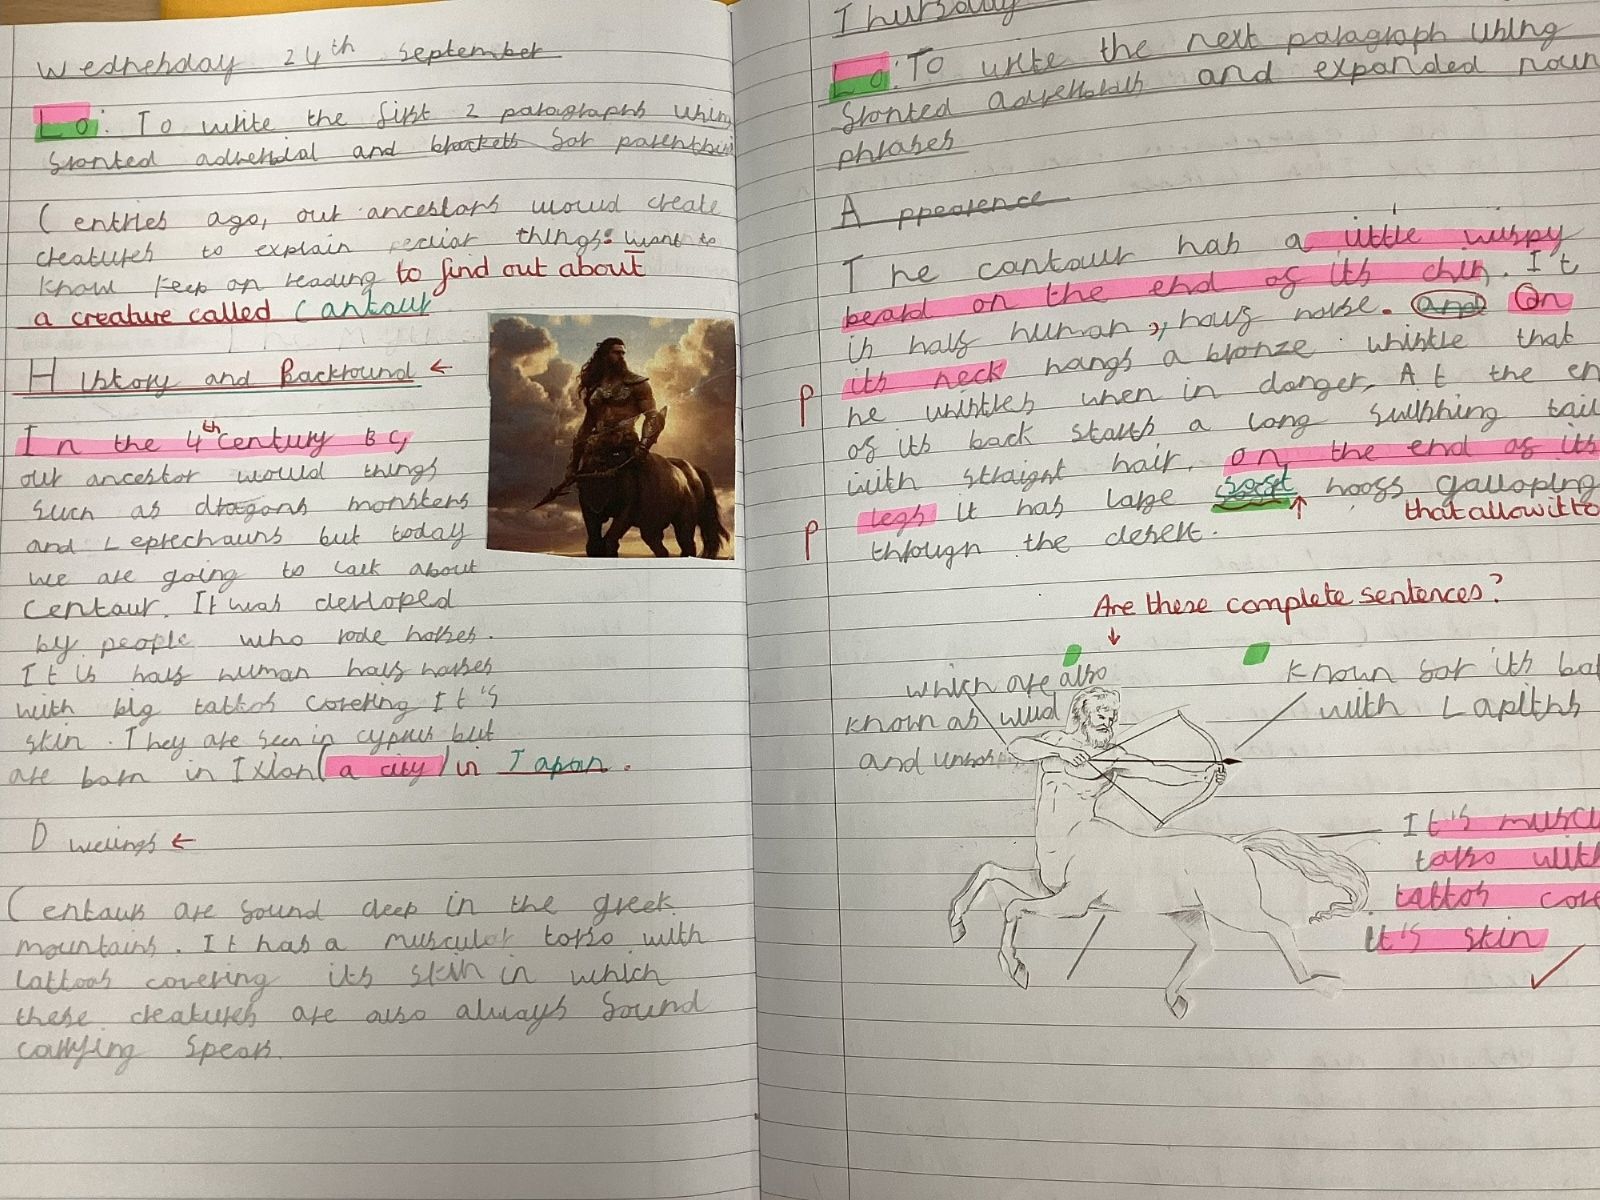 Wednesday 24th September
Lo: To write the first 2 paragraphs using
fronted adverbial and brackets for parenthisi
Centries ago, our ancestors would create
creatures to explain peculiar things. Want to
know keep on reading to find out about
a creature called Cantaur
History and Backround ←
In the 4th Century BC,
our ancestor would things
such as dragons monsters
and Leprechauns but today
we are going to talk about
Centaur. It was devloped
by people who rode horses.
It is half human half horses
with big tattos covering It's
skin. They are seen in cyprus but
are born in Ixion (a city) in Japan.
Dwelings ←
Centaurs are found deep in the greek
mountains. It has a muscular torso with
tattoos covering its skin in which
these creatures are also always found
carrying spears.
Thursday
Lo: To write the next paragraph using
fronted adverbials and expanded noun
phrases
Appearence
The cantour has a little wispy
beard on the end of its chin. It
is half human, half horse. and On
P its neck hangs a bronze whistle that
he whistles when in danger. At the en
of its back starts a long swishing tail
with straight hair. on the end of its
legs it has large hoofs galloping
that allow it to
P through the desert.
Are these complete sentences?
which are also
known as wild
and
Known for its bat
with Lapiths
It's muscu
torso with
tattos cove
it's skin